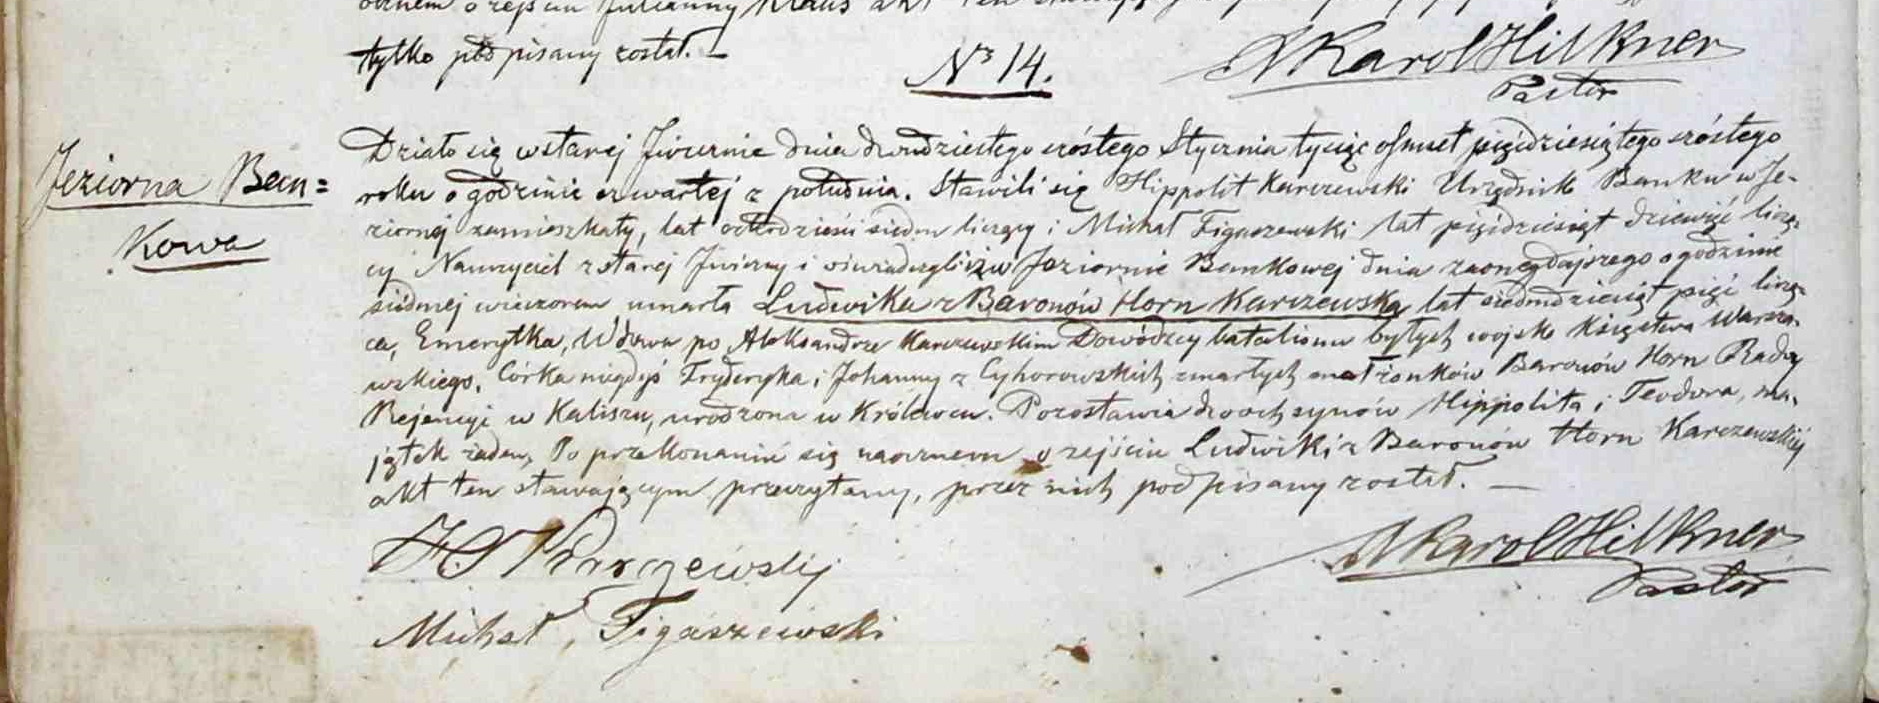 o zejściu Julianny Klaus akt ten
tylko podpisany został. —
A Karol Hilkner
Pastor
Nr 14.
Jeziorna Ban=
kowa
Działo się w starej Iwicznie dnia dwudziestego szóstego Stycznia tysiąc ośmset pięćdziesiątego szóstego
roku o godzinie czwartej z południa. Stawili się Hippolit Karczewski Urzędnik Banku w Je-
ziornej zamieszkały, lat czterdzieści siedm liczący i Michał Figaszewski lat pięćdziesiąt dziewięć liczą-
cy Nauczyciel z starej Iwiczny i oświadczyli iż w Jeziornie Bankowej dnia zaonegdajszego o godzinie
siódmej wieczorem umarła Ludwika z Baronów Horn Karczewska lat siedmdziesiąt pięć liczą-
ca, Emerytka, Wdowa po Aleksandrze Karczewskim Dowódzcy batalionu byłych wojsk Księstwa Warsza-
wskiego. Córka niegdyś Fryderyka i Johanny z Cyhorowskich zmarłych małżonków Baronów Horn Radzy
Rejencyi w Kaliszu, urodzona w Królewcu. Pozostawia dwóch synów Hippolita i Teodora, ma-
jątek żaden, Po przekonaniu się naocznem o zejściu Ludwiki z Baronów Horn Karczewskiej
akt ten stawającym przeczytany, przez nich podpisany został. —
H Karczewskij
A Karol Hilkner
Pastor
Michał Figaszewski